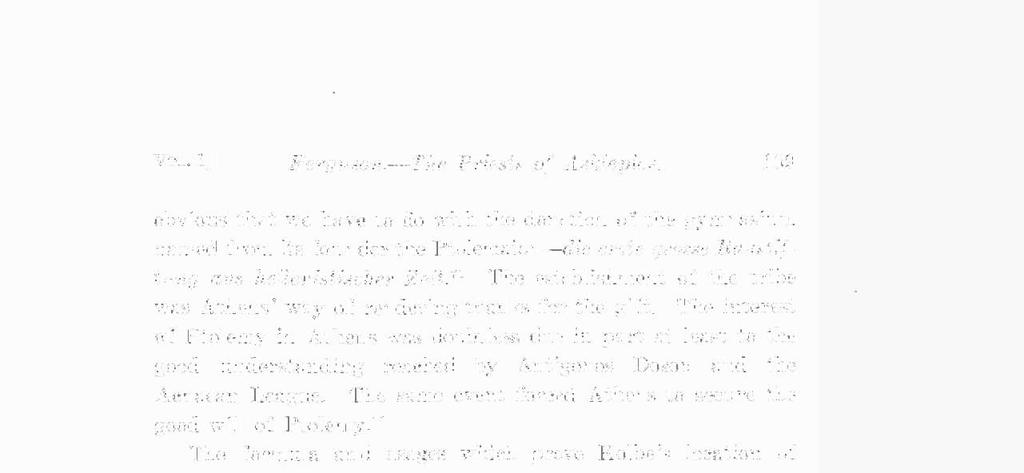 Ferguson.—The Priests of Asklepios. 159
obvious that we have to do with the donation of the gymnasium,
named from its founder the Ptolemaion—die erste grosse
aus hellenistischer Zeit. The establishment of the tribe
was Athens' way of rendering thanks for the gift. The interest
of Ptolemy in Athens was doubtless due in part at least to the
good understanding reached by Antigonos Doson and the
Achaean League. The same event forced Athens to secure the
good will of Ptolemy.
The and which prove Kolbe's location of